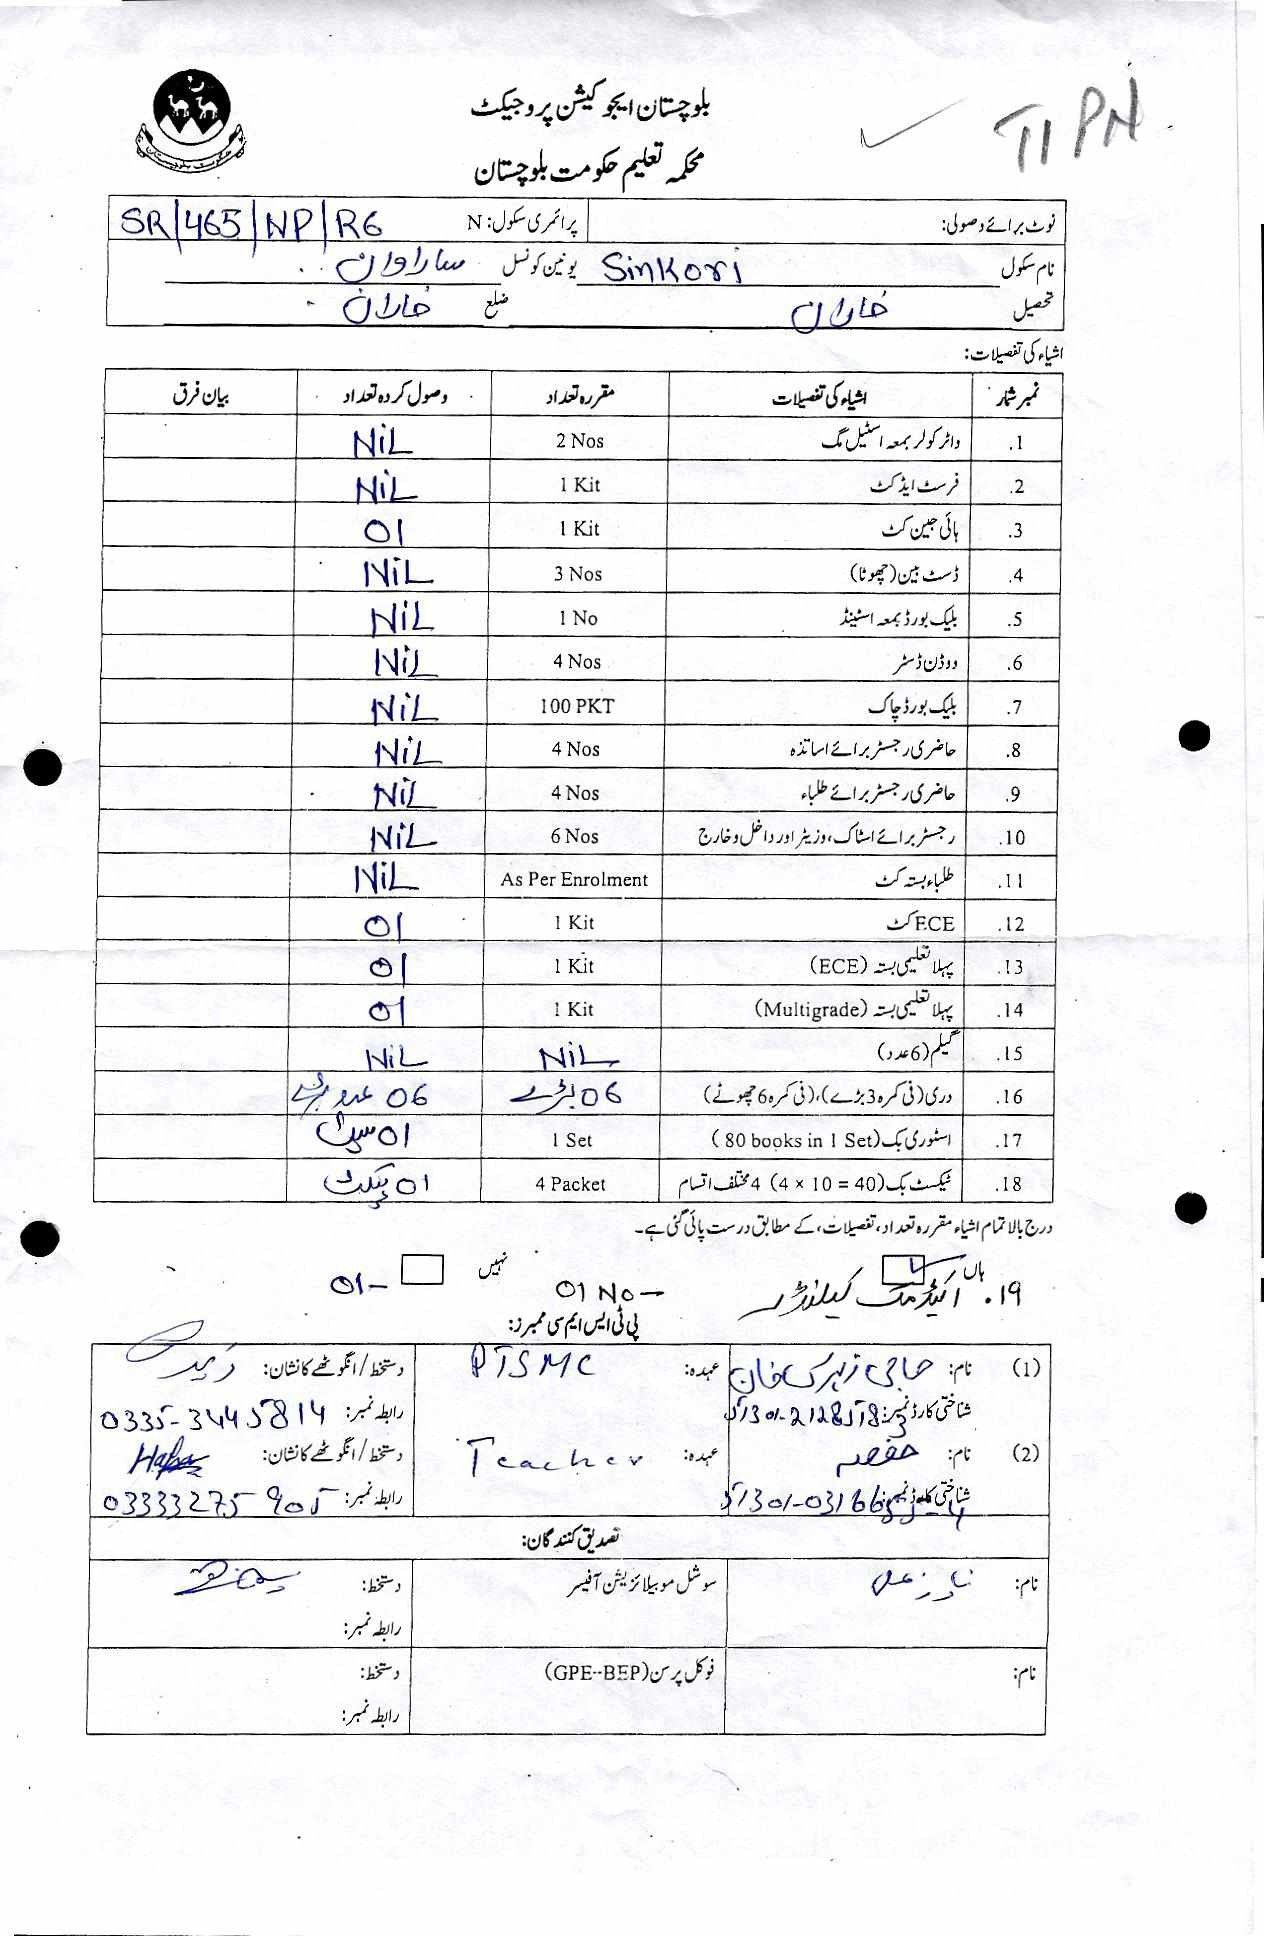 بلوچستان ایجوکیشن پروجیکٹ
محکمہ تعلیم حکومت بلوچستان
TI PN
نوٹ برائے وصولی: پرائمری سکول: N SR/465/NP/R6
نام سکول Sinkori یونین کونسل ساراوان
تحصیل خاران ضلع خاران
اشیاء کی تفصیلات:
نمبر شمار اشیاء کی تفصیلات مقررہ تعداد وصول کردہ تعداد بیان فرق
1. واٹر کولر بمعہ اسٹیل مگ 2 Nos NiL
2. فرسٹ ایڈ کٹ 1 Kit NiL
3. ہائی جین کٹ 1 Kit 01
4. ڈسٹ بین (چھوٹا) 3 Nos NiL
5. بلیک بورڈ بمعہ اسٹینڈ 1 No NiL
6. ووڈن ڈسٹر 4 Nos NiL
7. بلیک بورڈ چاک 100 PKT NiL
8. حاضری رجسٹر برائے اساتذہ 4 Nos NiL
9. حاضری رجسٹر برائے طلباء 4 Nos NiL
10. رجسٹر برائے اسٹاک، وزیٹر اور داخل و خارج 6 Nos NiL
11. طلباء بستہ کٹ As Per Enrolment NiL
12. ECE کٹ 1 Kit 01
13. پہلا تعلیمی بستہ (ECE) 1 Kit 01
14. پہلا تعلیمی بستہ (Multigrade) 1 Kit 01
15. گیلم (6 عدد) NiL NiL
16. دری (فی کمرہ 3 بڑے)، (فی کمرہ 6 چھوٹے) 06 بڑے 06 عدد بڑے
17. اسٹوری بک (80 books in 1 Set) 1 Set 01 سیٹ
18. ٹیکسٹ بک (4 × 10 = 40) 4 مختلف اقسام 4 Packet 01 پیکٹ
درج بالا تمام اشیاء مقررہ تعداد، تفصیلات، کے مطابق درست پائی گئی ہے۔
ہاں نہیں
۱۹. اکیڈمک کیلنڈر 01 No— 01—
پی ٹی ایس ایم سی ممبرز:
(1) نام: حاجی زہرک خان عہدہ: PTSMC دستخط / انگوٹھے کا نشان:
شناختی کارڈ نمبر: رابطہ نمبر: 0335-3445814
(2) نام: حفصہ عہدہ: Teacher دستخط / انگوٹھے کا نشان:
شناختی کارڈ نمبر: رابطہ نمبر: 03333275905
تصدیق کنندگان:
نام: سوشل موبیلائزیشن آفیسر دستخط:
رابطہ نمبر:
نام: فوکل پرسن (GPE--BEP) دستخط:
رابطہ نمبر: